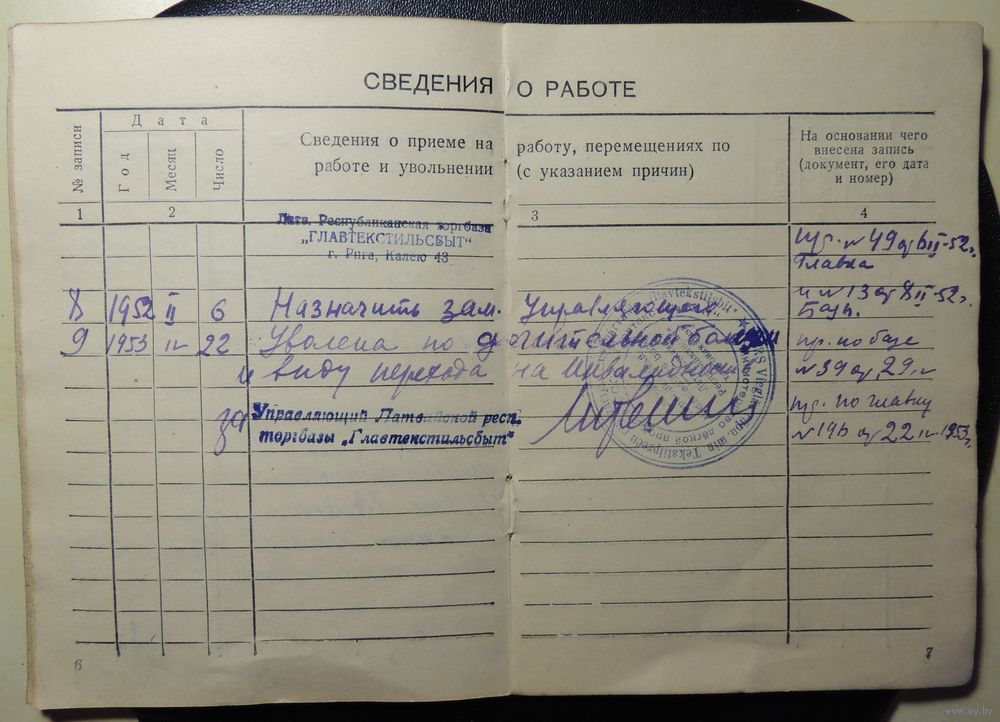 СВЕДЕНИЯ О РАБОТЕ
№ записи
Дата
Год
Месяц
Число
Сведения о приеме на работу, перемещениях по
работе и увольнении (с указанием причин)
На основании чего
внесена запись
(документ, его дата
и номер)
1 2 3 4
Латв. Республиканская торгбаза
„ГЛАВТЕКСТИЛЬСБЫТ“
г. Рига, Калею 43
№ 49 6 II-52г.
Главка
8 1952 II 6 Назначить зам. Управляющего
и № 13 8 II-52г.
Базы.
9 1953 IV 22 Уволена по
пр. по базе
и виду перехода на Инвалидность
№ 39 29 IV
по главку
№ 22 IV 1953г.
за Управляющий Латвийской респ.
торгбазы „Главтекстильсбыт“
6
7
www.ay.by